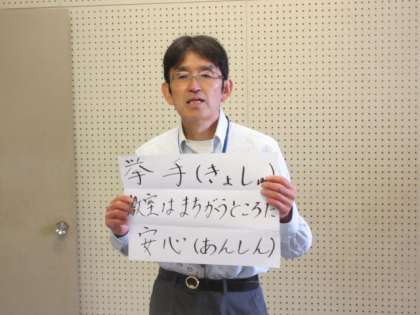 挙手(きょしゅ)
教室はまちがうところだ
安心(あんしん)